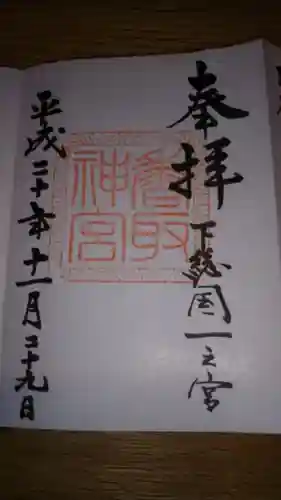 奉拝
下総国一之宮
香取神宮
平成二十年十一月二十九日